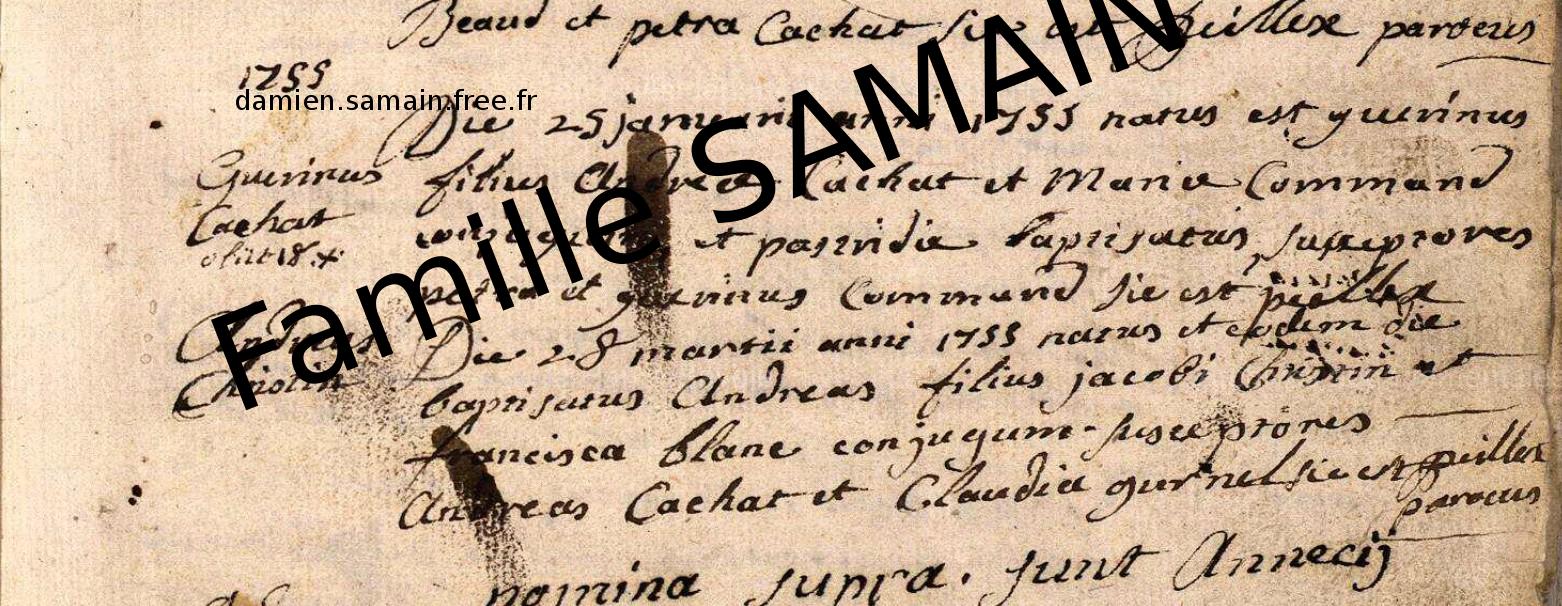 Beaud et petra Cachat sic est peillex parocus
1755
damien.samain.free.fr
Famille SAMAIN
Die 25 januarii anni 1755 natus est guerinus
Guerinus
filius Andreæ Cachat et Mariæ Command
Cachat
obiit 18
et postridie baptisatus, susceptores
petra et guerinus Command sic est peillex
Andreas
Die 28 martii anni 1755 natus et eodem die
Christin
baptisatus Andreas filius jacobi Christin et
francisca blanc conjugum - susceptores
Andreas Cachat et Claudia gurnel sic est peillex
parocus
nomina supra. sunt Annecij